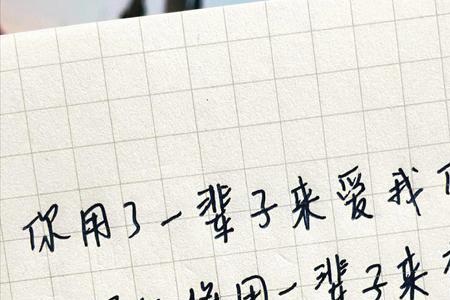 你用了一辈子来爱我
你用一辈子来